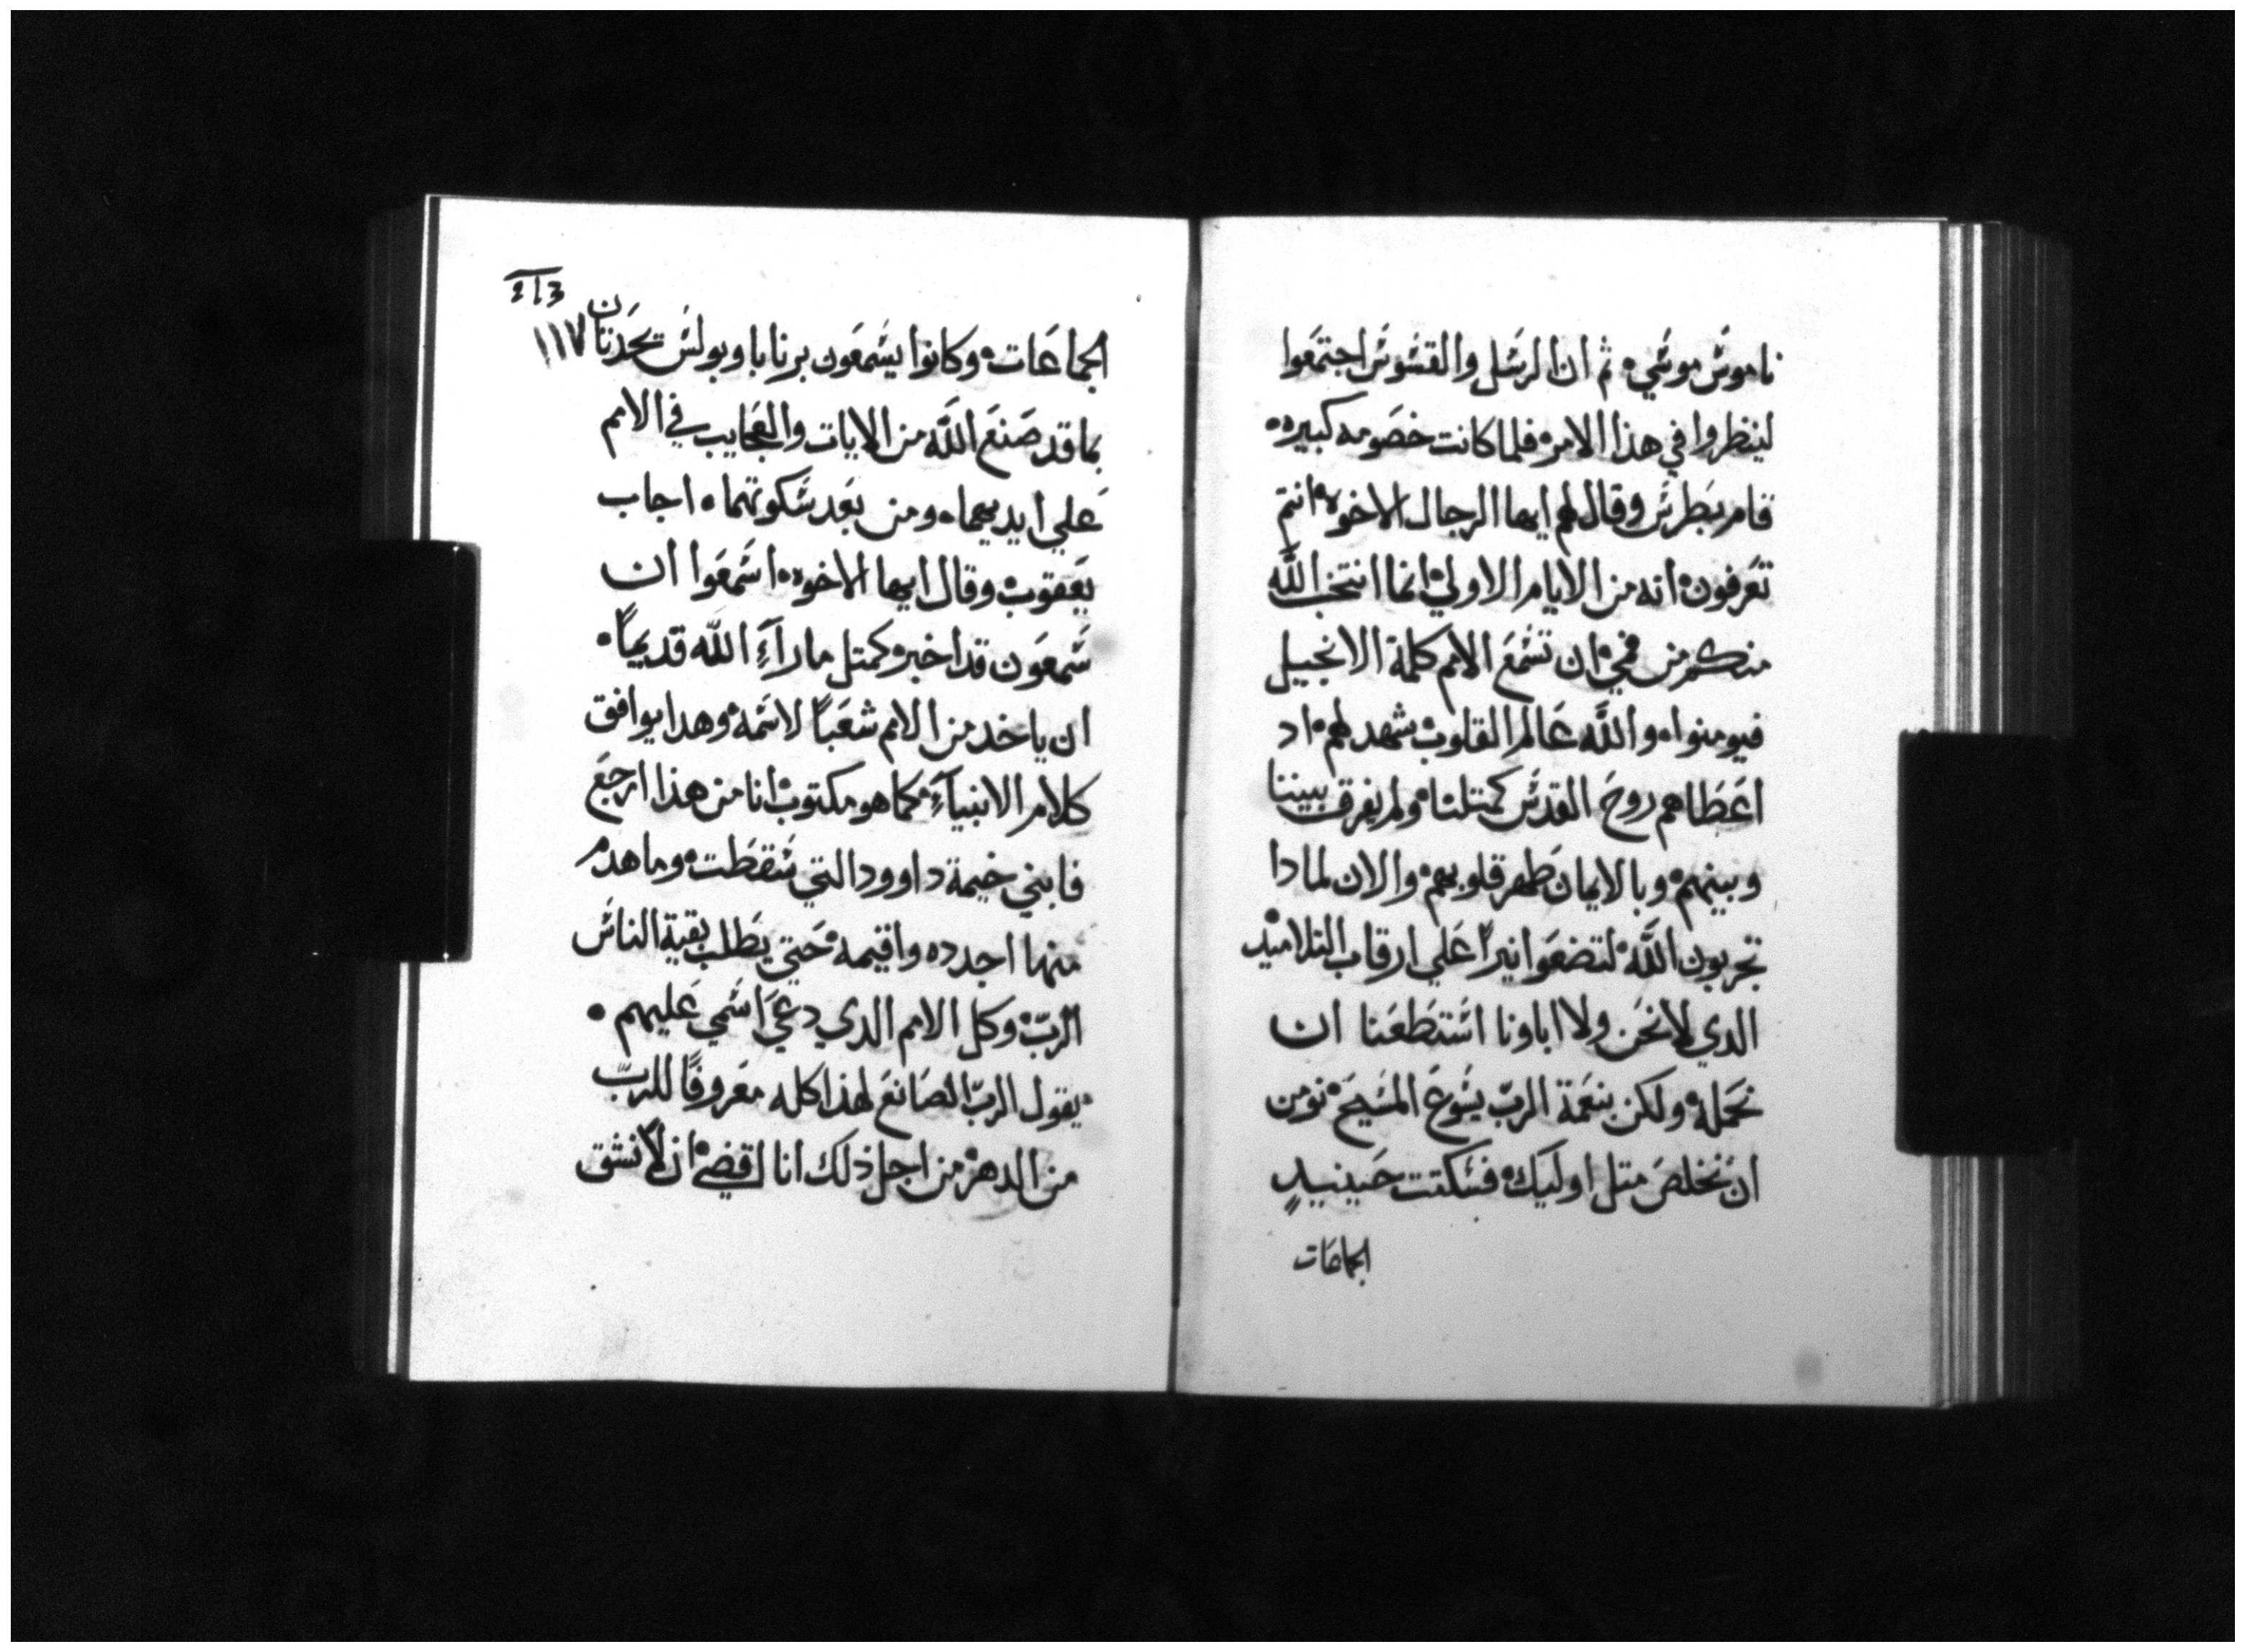 ناموس موسي ثم ان الرسل والقسوس اجتمعوا
لينظروا في هذا الامر فلما كانت خصومه كبيره
قام بطرس وقال لهم ايها الرجال الاخوه انتم
تعرفون انه من الايام الاولي انما انتخب الله
منكم من فمي ان تسمع الامم كلمة الانجيل
فيومنوا والله عالم القلوب شهد لهم اد
اعطاهم روح القدس كمتلنا ولم يفرق بيننا
وبينهم وبالايمان طهر قلوبهم والان لمادا
تجربون الله لتضعوا نيرا علي ارقاب التلاميد
الدي لا نحن ولا اباونا استطعنا ان
نحمله ولكن بنعمة الرب يسوع المسيح نومن
ان نخلص متل اوليك فسكتت حينيدٍ
الجماعات
213
١١٧
الجماعات وكانوا يسمعون برنابا وبولس يتحدتان
بما قد صنع الله من الايات والعجايب في الامم
علي ايديهما ومن بعد سكوتهما اجاب
يعقوب وقال ايها الاخوه اسمعوا ان
سمعون قد اخبر كمتل ما راءَ الله قديماً
ان ياخد من الامم شعباً لاسمه وهدا يوافق
كلام الانبياءِ كما هو مكتوب انا من هذا ارجع
فابني خيمة داوود التي سقطت وما هدم
منها اجدده واقيمه حتي يطلب بقية الناس
الربّ وكل الامم الدي دعي اسمي عليهم
يقول الربّ الصانع لهذا كله معروفاً للربّ
من الدهر من اجل ذلك انا اقضي ان لا نشق